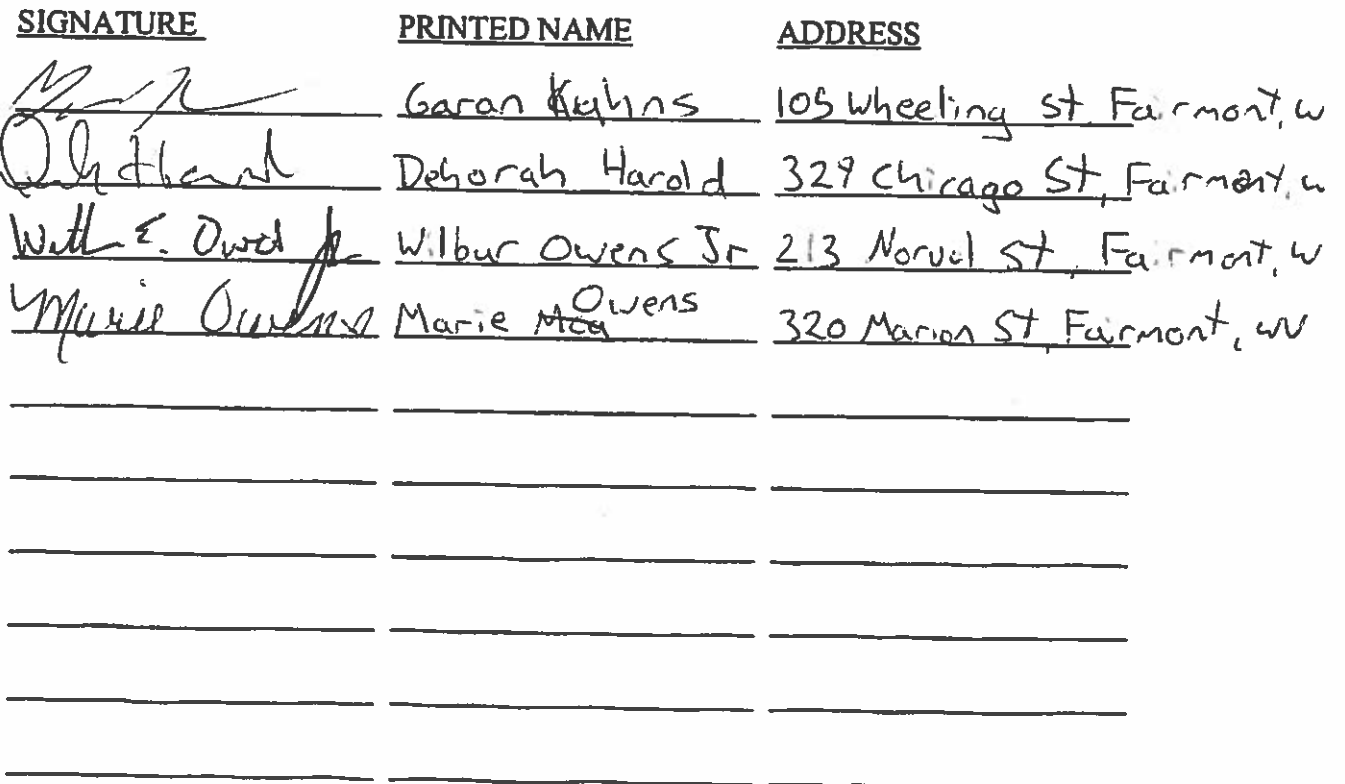 SIGNATURE PRINTED NAME ADDRESS
Garan Kuhns 105 Wheeling St, Fairmont, W
Deborah Harold 329 Chicago St, Fairmont,
Wilbur Owens Jr 213 Norval St, Fairmont, W
Marie Owens Marie Owens 320 Marion St, Fairmont, WV